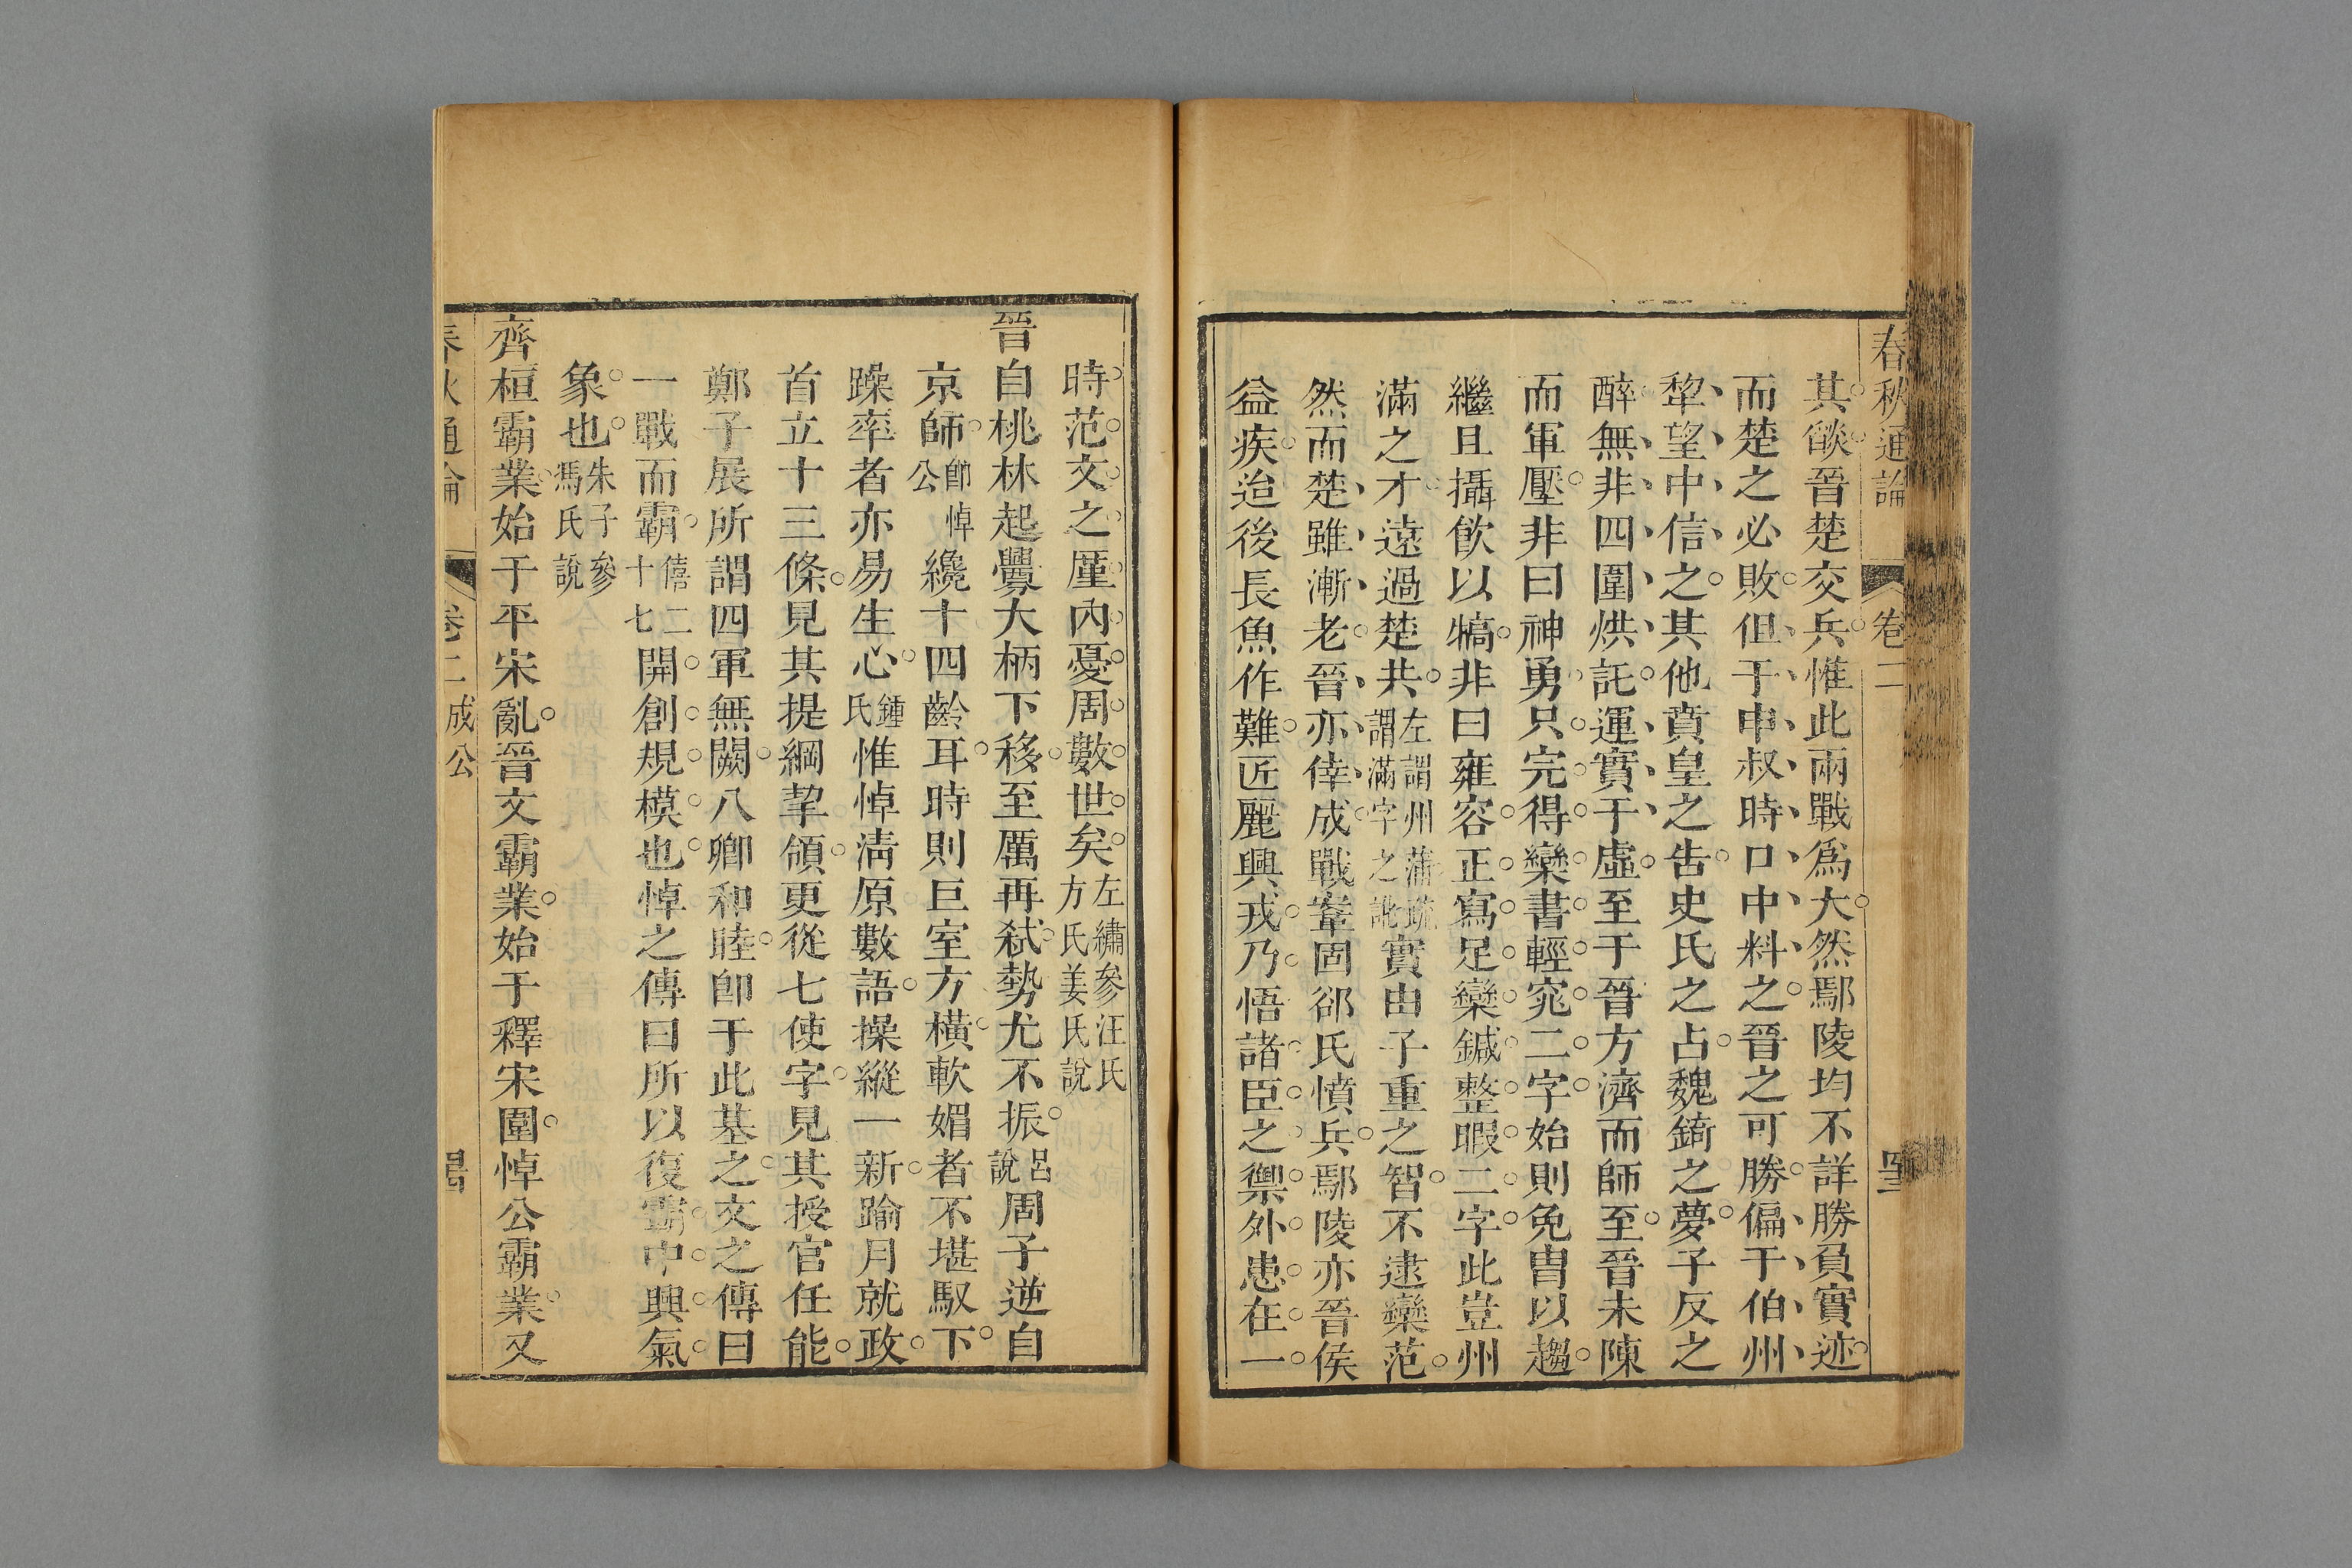 春秋通論 卷二
其燄晉楚交兵惟此兩戰爲大然鄢陵均不詳勝負實迹
而楚之必敗但于申叔時口中料之晉之可勝偏于伯州
犂望中信之其他賁皇之告史氏之占魏錡之夢子反之
醉無非四圍烘託運實于虛至于晉方濟而師至晉未陳
而軍壓非曰神勇只完得欒書輕窕二字始則免冑以趨
繼且攝飲以犒非曰雍容正寫足欒鍼整暇二字此豈州
滿之才遠過楚共左謂州蒲疏謂滿字之訛實由子重之智不逮欒范
然而楚雖漸老晉亦倖成戰鞌固郤氏憤兵鄢陵亦晉侯
益疾迨後長魚作難匠麗興戎乃悟諸臣之禦外患在一
時范文之厪內憂周數世矣左繡參汪氏方氏姜氏說
晉自桃林起釁大柄下移至厲再弒勢尤不振呂說周子逆自
京師卽悼公纔十四齡耳時則巨室方橫軟媚者不堪馭下
躁率者亦易生心鍾氏惟悼淸原數語操縱一新踰月就政
首立十三條見其提綱挈領更從七使字見其授官任能
鄭子展所謂四軍無闕八卿和睦卽于此基之文之傳曰
一戰而霸僖二十七開創規模也悼之傳曰所以復霸中興氣
象也朱子參馮氏說
齊桓霸業始于平宋亂晉文霸業始于釋宋圍悼公霸業又
春秋通論 卷二 成公